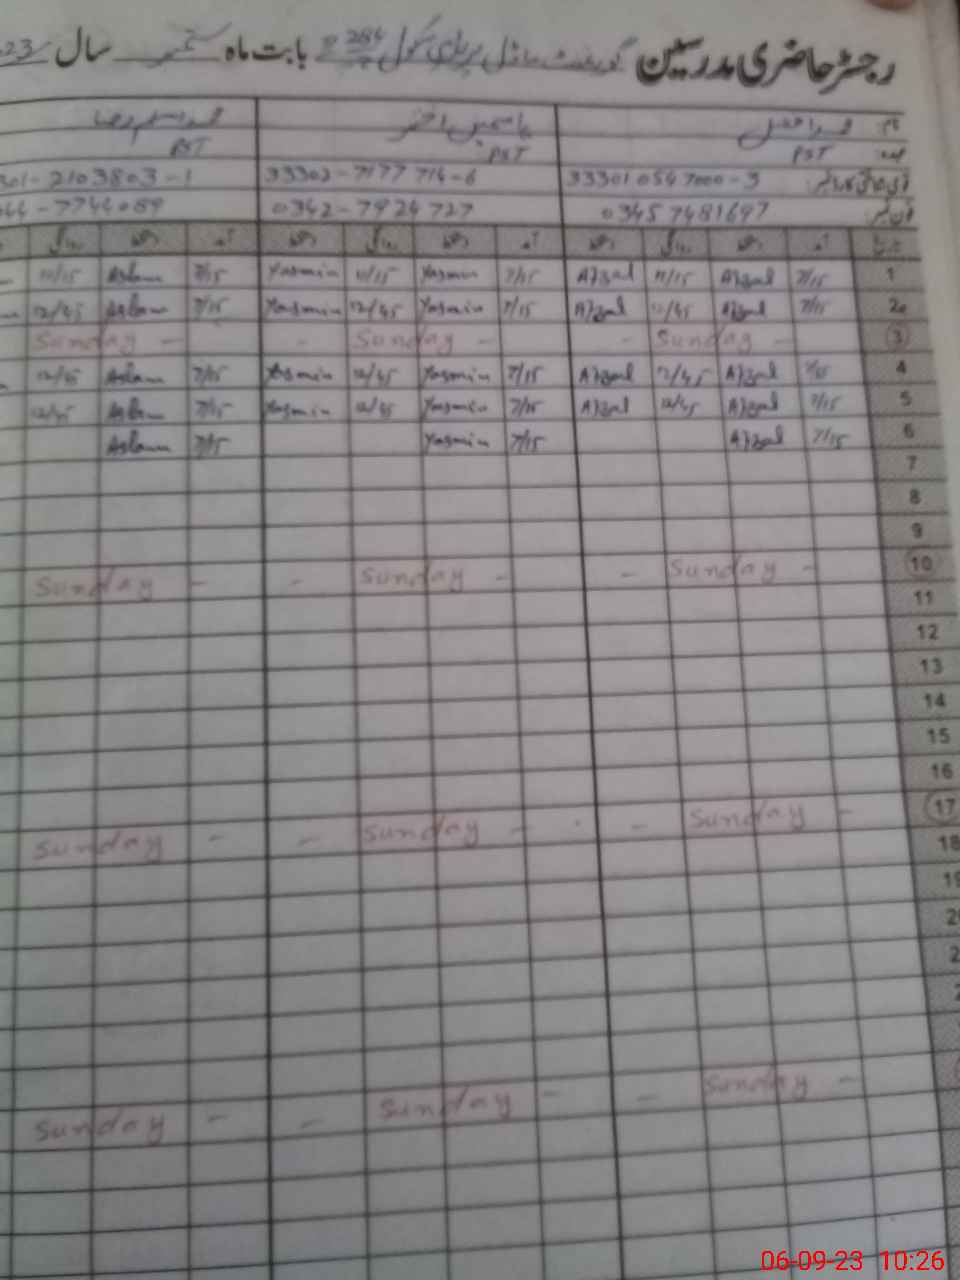 رجسٹر حاضری مدرسین گورنمنٹ ماڈل پرائمری سکول 284 بابت ماہ ستمبر سال 23
نام محمد افضل یاسمین اختر
عہدہ PST PST PST
33301 0547000-3 33302-7177714-6 301-2103803-1
فون نمبر 0345 7481697 0342-7924727 044-7744089
آمد دستخط روانگی دستخط آمد دستخط روانگی دستخط آمد دستخط روانگی
1 7/15 Afzal 11/15 Afzal 7/15 Yasmin 11/15 Yasmin 7/15 Aslam 11/15
2 7/15 Afzal 12/45 Afzal 7/15 Yasmin 12/45 Yasmin 7/15 Aslam 12/45
3 Sunday - - Sunday - - Sunday -
4 7/15 Afzal 12/45 Afzal 7/15 Yasmin 12/45 Yasmin 7/15 Aslam 12/45
5 7/15 Afzal 12/45 Afzal 7/15 Yasmin 12/45 Yasmin 7/15 Aslam 12/45
6 7/15 Afzal 7/15 Yasmin 7/15 Aslam
7
8
9
10 Sunday - - Sunday - - Sunday -
11
12
13
14
15
16
17 Sunday - - Sunday - - Sunday -
18
Sunday - - Sunday - - Sunday -
06-09-23 10:26